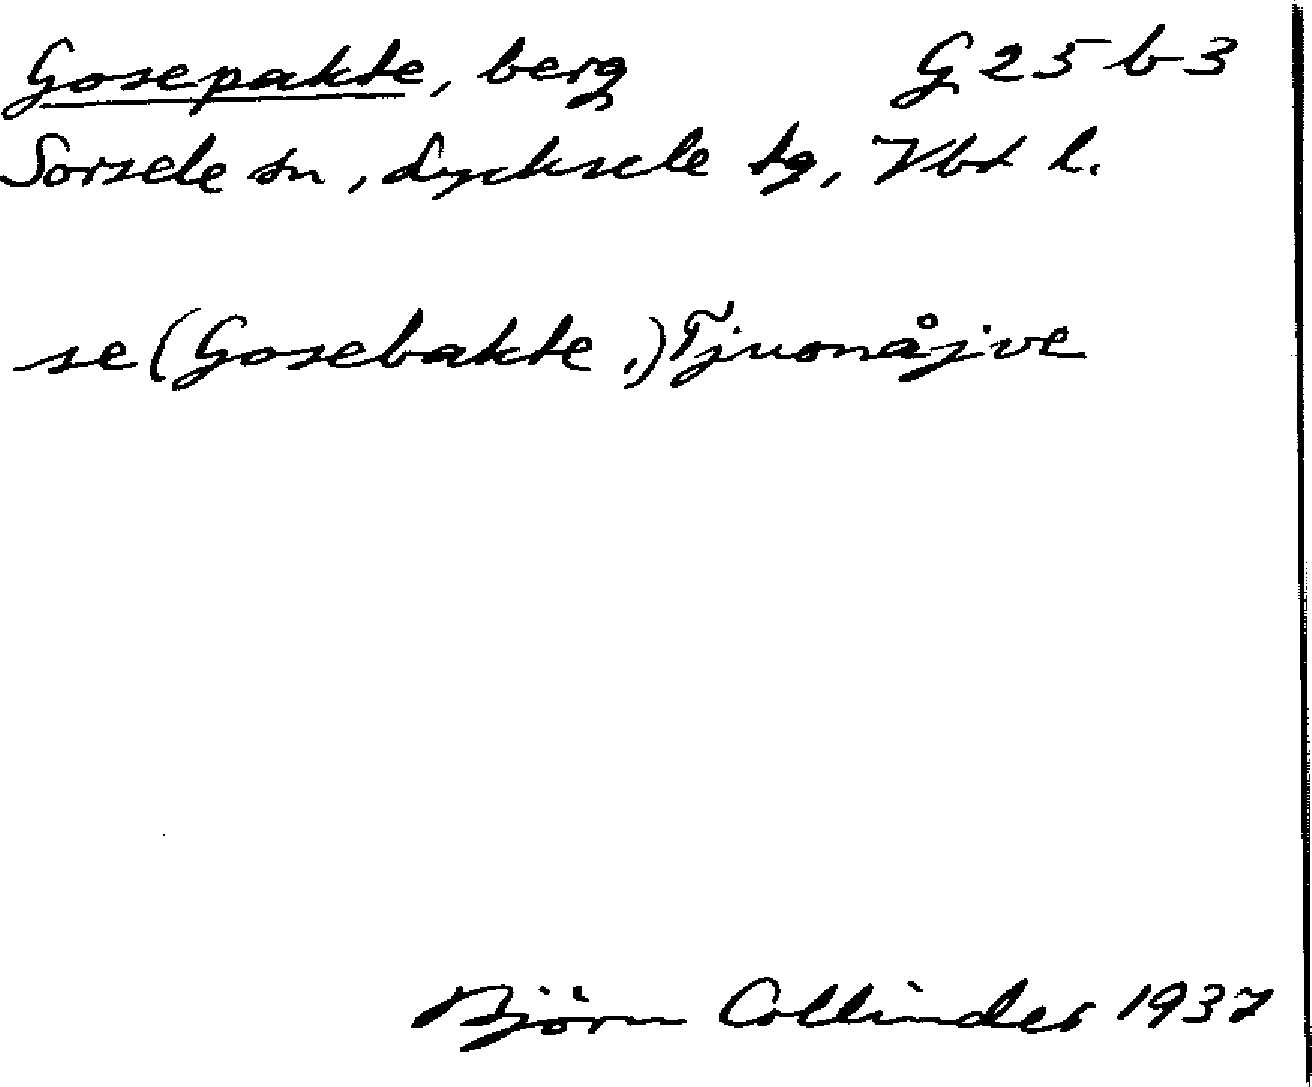 Gosepakte, berg G 25 b 3
Sorsele sn, Lycksele tg, Vbt l.
se (Gosebakte,) Tjuonåjve
Björn Collinder 1937